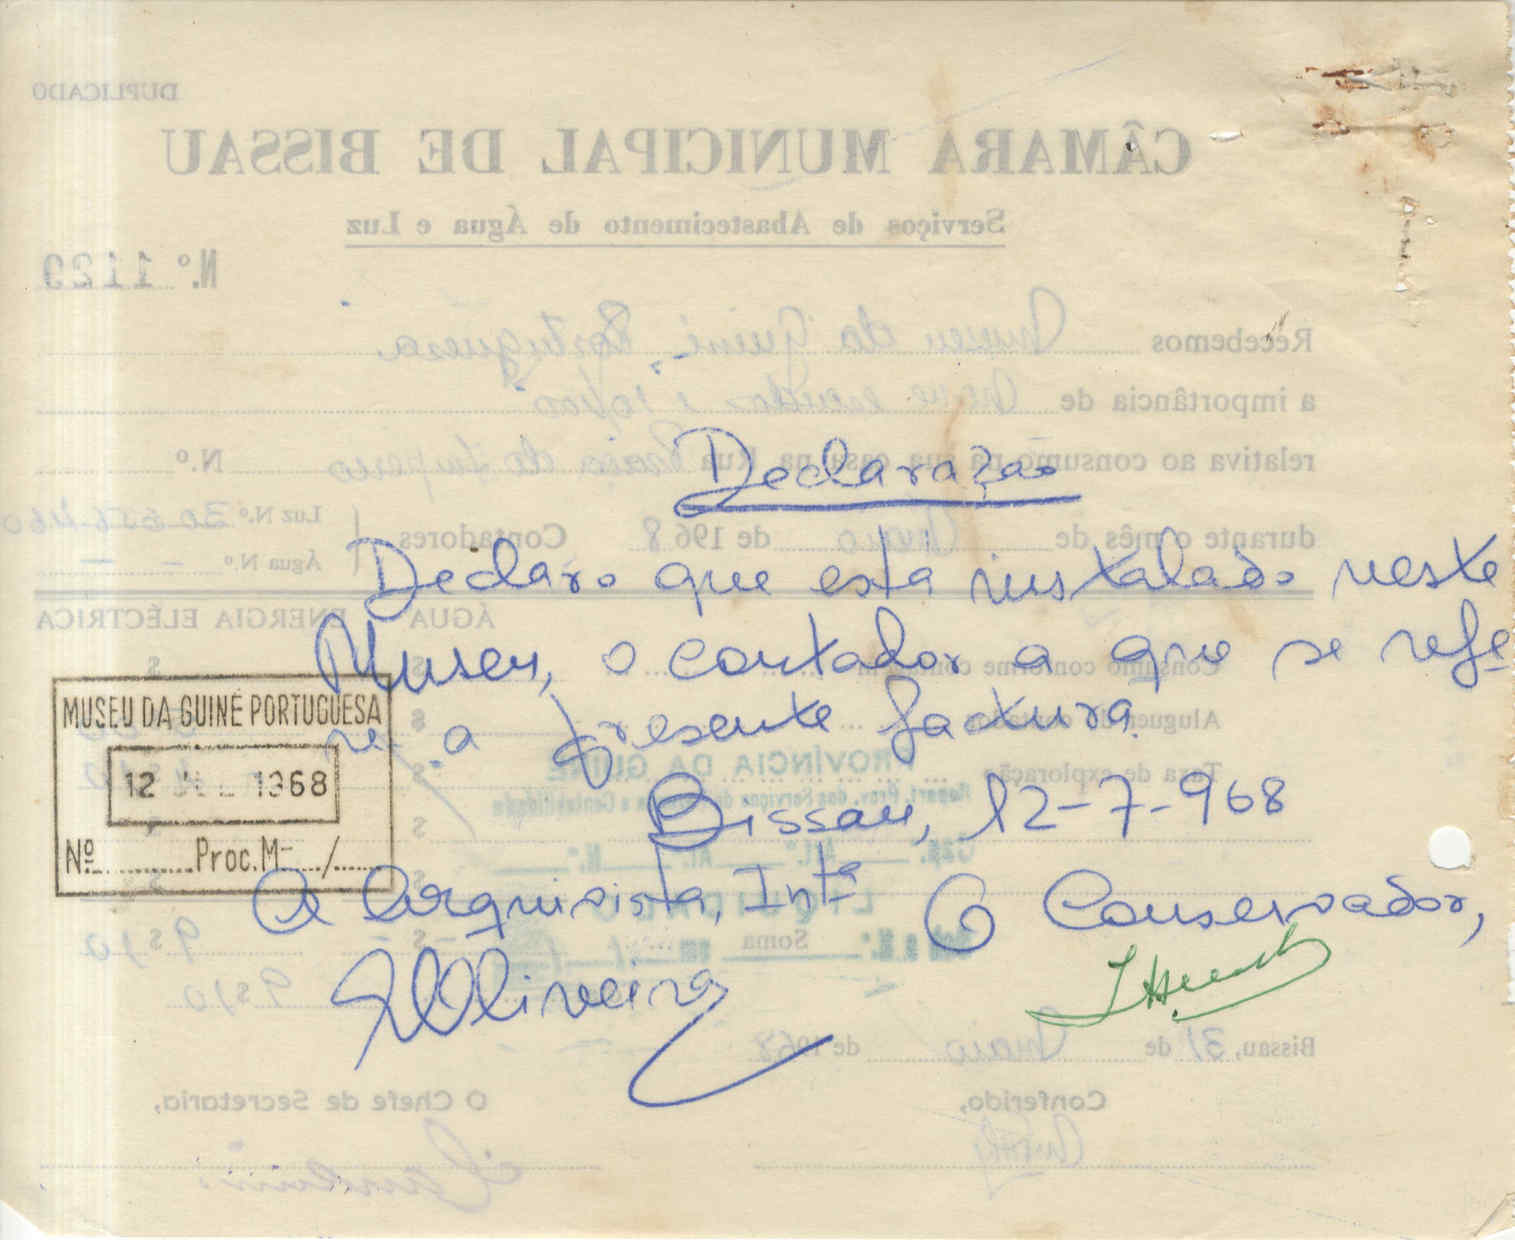 Declaração
Declaro que está instalado neste
Museu, o contador a que se refe-
re a presente factura.
Bissau, 12-7-968
MUSEU DA GUINÉ PORTUGUESA
12 1968
Nº ............ Proc. M- ..../......
A Arquivista, Intª O Conservador,
Oliveira
DUPLICADO
CÂMARA MUNICIPAL DE BISSAU
Serviços de Abastecimento de Água e Luz
N.º 1129
Recebemos Museu da Guiné Portuguesa
a importância de nove escudos e
relativa ao consumo na sua casa na Rua Praça do Império N.º
durante o mês de Maio de 1968 Contadores Luz N.º
Água N.º - -
ÁGUA ENERGIA ELÉCTRICA
Consumo conforme $ $
Aluguer $
Taxa de exploração $
PROVÍNCIA DA GUINÉ
Soma 9$10
9$10
Bissau, 31 de Maio de 1968
Conferido, O Chefe de Secretaria,